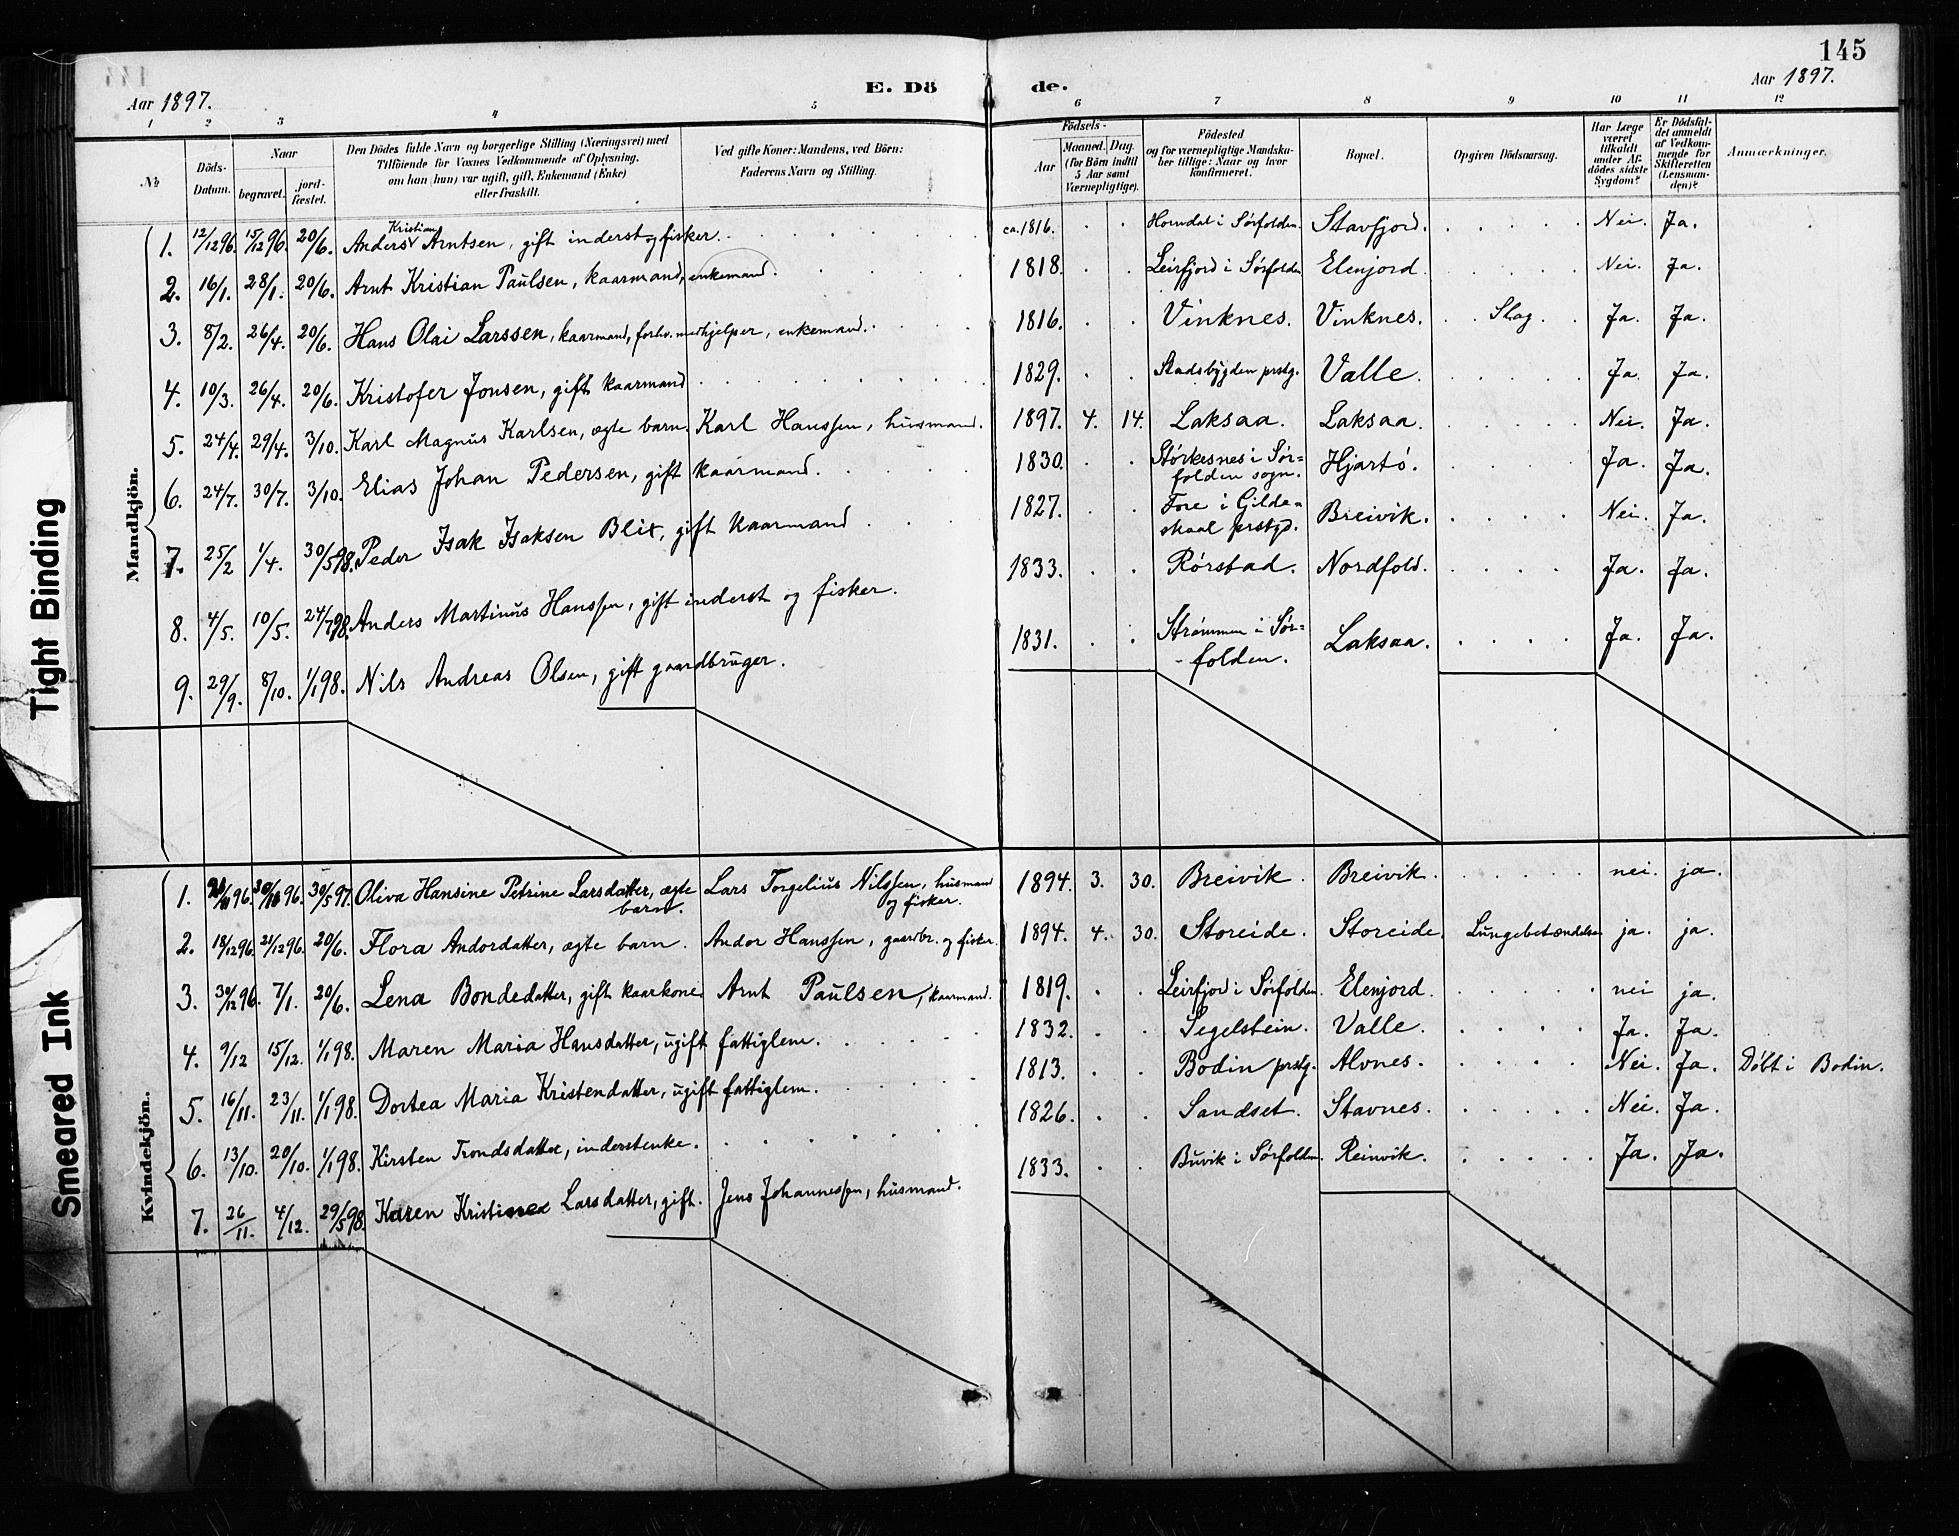 145
Aar 1897.
E. Dö de.
Aar 1897.
1 2 3 4 5 6 7 8 9 10 11 12
No
Döds-Datum.
Naar
begravet.
jord-fæstet.
Den Dödes fulde Navn og borgerlige Stilling (Næringsvei) med
Tilföiende for Voxnes Vedkommende af Oplysning,
om han (hun) var ugift, gift, Enkemand (Enke)
eller fraskilt.
Ved gifte Koner: Mandens, ved Börn:
Faderens Navn og Stilling.
Födsels-
Aar
Maaned. Dag.
(for Börn indtil
5 Aar samt
Værnepligtige).
Födested
og for værnepligtige Mandska-
ber tillige: Naar og hvor
konfirmeret.
Bopæl.
Opgiven Dödsaarsag.
Har Læge
været
tilkaldt
under Af-
dödes sidste
Sygdom?
Er Dödsfal-
det anmeldt
af Vedkom-
mende for
Skifteretten
(Lensman-
den)?
Anmærkninger.
Mandkjön.
1. 12/12 96. 15/12 96. 20/6. Anders Kristian Arntsen, gift inderst og fisker. ca. 1816. Horndal i Sørfolden. Stavfjord. Nei. Ja.
2. 16/1. 28/1. 20/6. Arnt Kristian Paulsen, kaarmand, enkemand. 1818. Leirfjord i Sørfolden Elenjord. Nei. Ja.
3. 8/2. 26/4. 20/6. Hans Olai Larssen, kaarmand, forhv. medhjelper, enkemand. 1816. Vinknes. Vinknes. Slag. Ja. Ja.
4. 10/3. 26/4. 20/6. Kristofer Jonsen, gift kaarmand 1829. Stadsbygden prstg. Valle. Ja. Ja.
5. 24/4. 29/4. 3/10. Karl Magnus Karlsen, ægte barn. Karl Hanssen, husmand. 1897. 4. 14. Laksaa. Laksaa. Nei. Ja.
6. 24/7. 30/7. 3/10. Elias Johan Pedersen, gift kaarmand. 1830. Storkesnes i Sør=
folden sogn. Hjartö. Ja. Ja.
7. 25/2 1/4. 30/5 98. Peder Isak Isaksen Blix, gift kaarmand 1827. Fore i Gilde-
skaal prstgd. Breivik. Nei. Ja.
8. 4/5. 10/5. 24/7 98. Anders Martinus Hanssen, gift inderst og fisker. 1833. Rørstad. Nordfold. Ja. Ja.
9. 29/9. 8/10. 1/1 98. Nils Andreas Olsen, gift gaardbruger. 1831. Strømmen i Sør=
folden. Laksaa. Ja. Ja.
Kvindekjön.
1. 96. 96. 30/5 97. Oliva Hansine Petrine Larsdatter, ægte
barn. Lars Torgelius Nilssen, husmand
og fisker. 1894. 3. 30. Breivik. Breivik. nei. ja.
2. 18/12 96. 21/12 96. 20/6. Flora Andordatter, ægte barn. Andor Hanssen, gaardbr. og fisker. 1894. 4. 30. Storeide. Storeide. Lungebetændelse ja. ja.
3. 30/12 96. 7/1. 20/6. Lena Bondedatter, gift kaarkone Arnt Paulsen, kaarmand. 1819. Leirfjord i Sørfolden. Elenjord. nei ja.
4. 9/12 15/12. 1/1 98. Maren Maria Hansdatter, ugift fattiglem. 1832. Segelstein. Valle. Ja. Ja.
5. 16/11. 23/11. 1/1 98. Dortea Maria Kristendatter, ugift fattiglem. 1813. Bodin prstg. Alvnes. Nei. Ja. Døbt i Bodin.
6. 13/10. 20/10. 1/1 98. Kirsten Trondsdatter, inderstenke. 1826. Sandset. Stavnes. Nei. Ja.
7. 26/11. 4/12. 29/5 98. Karen Kristine Larsdatter, gift. Jens Johannessen, husmand. 1833. Buvik i Sørfolden. Reinvik. Ja. Ja.
Tight Binding
Smeared Ink